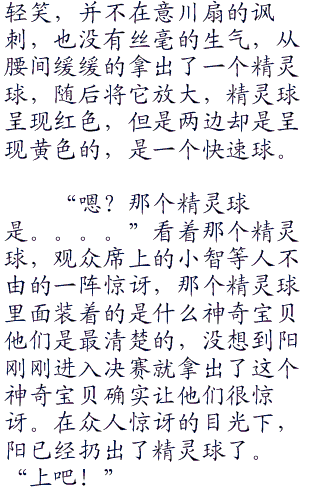 轻笑，并不在意川扇的讽
刺，也没有丝毫的生气，从
腰间缓缓的拿出了一个精灵
球，随后将它放大，精灵球
呈现红色，但是两边却是呈
现黄色的，是一个快速球。
“嗯？那个精灵球
是。。。。”看着那个精灵
球，观众席上的小智等人不
由的一阵惊讶，那个精灵球
里面装着的是什么神奇宝贝
他们是最清楚的，没想到阳
刚刚进入决赛就拿出了这个
神奇宝贝确实让他们很惊
讶。在众人惊讶的目光下，
阳已经扔出了精灵球了。
“上吧！”